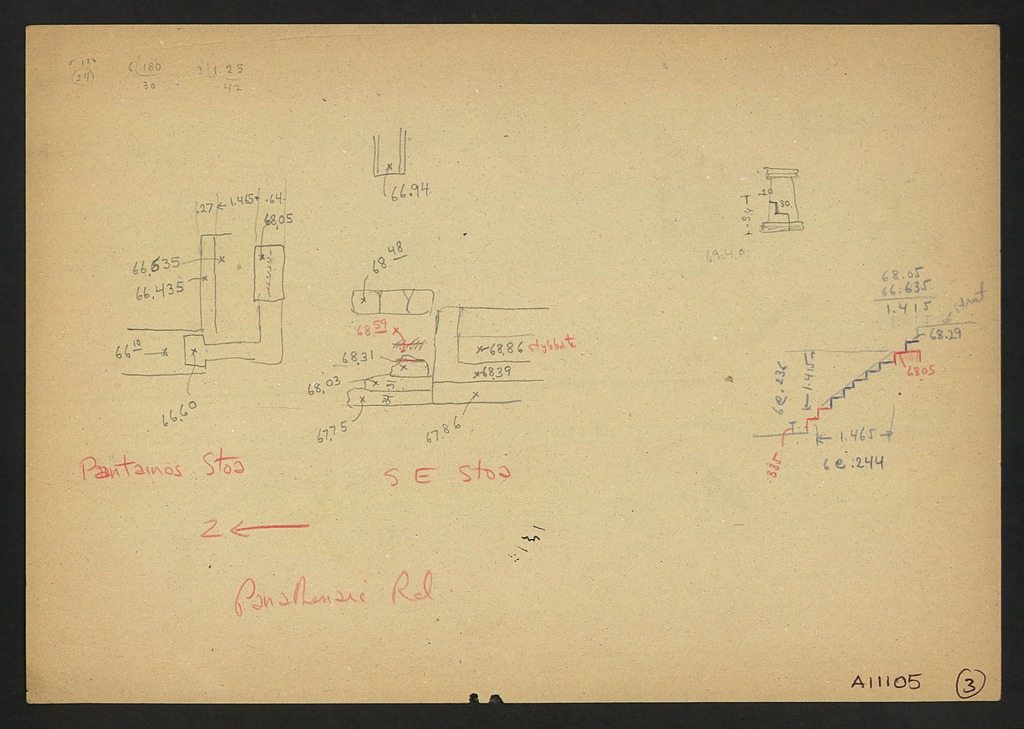 6 180
30
3 1.25
42
66.94
.27
1.465
.64
68.05
66.635
66.435
66 10
66.60
68 48
68 59
68.31
68.03
67.75
67.86
68.86 stylobate
68.39
.20
.30
69.40
68.05
66.635
1.415
68.29
68.05
6@.236
1.415
1.465
6@.244
.335
Pantainos Stoa
S E Stoa
Z
Panathenaic Rd.
A11105 3